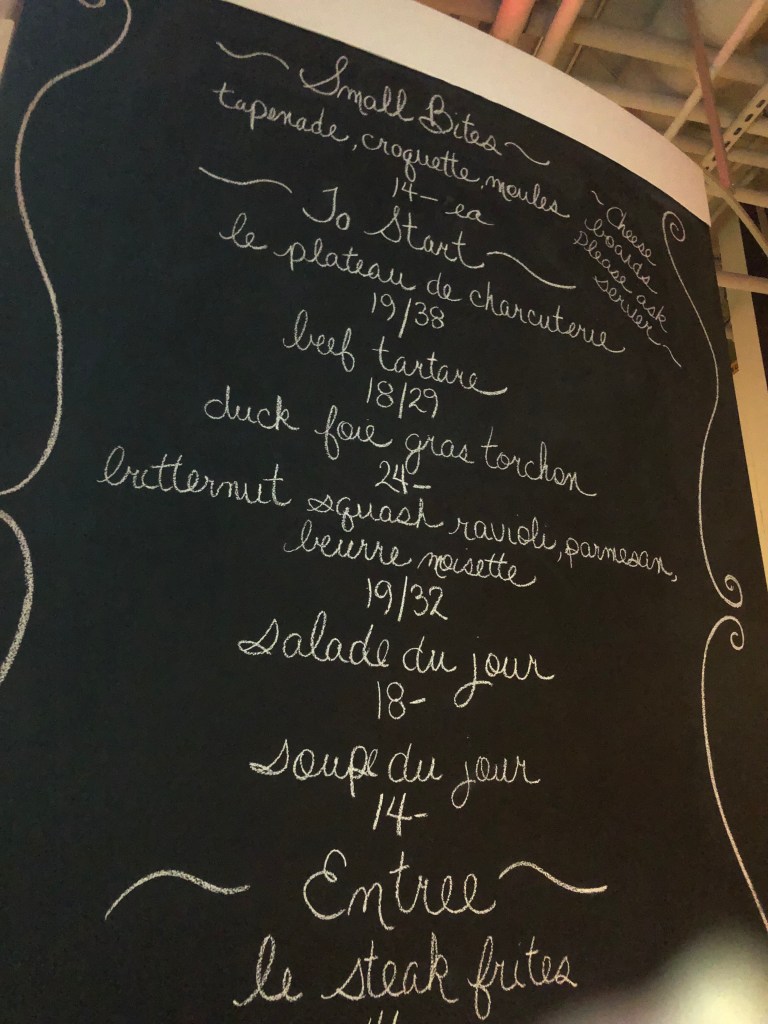 ~ Small Bites ~
tapenade, croquette, moules
14- ea
~ Cheese
boards
Please ask
server ~
~ To Start ~
le plateau de charcuterie
19/38
beef tartare
18/29
duck foie gras torchon
24-
butternut squash ravioli, parmesan,
beurre noisette
19/32
salade du jour
18-
soupe du jour
14-
~ Entree ~
le steak frites